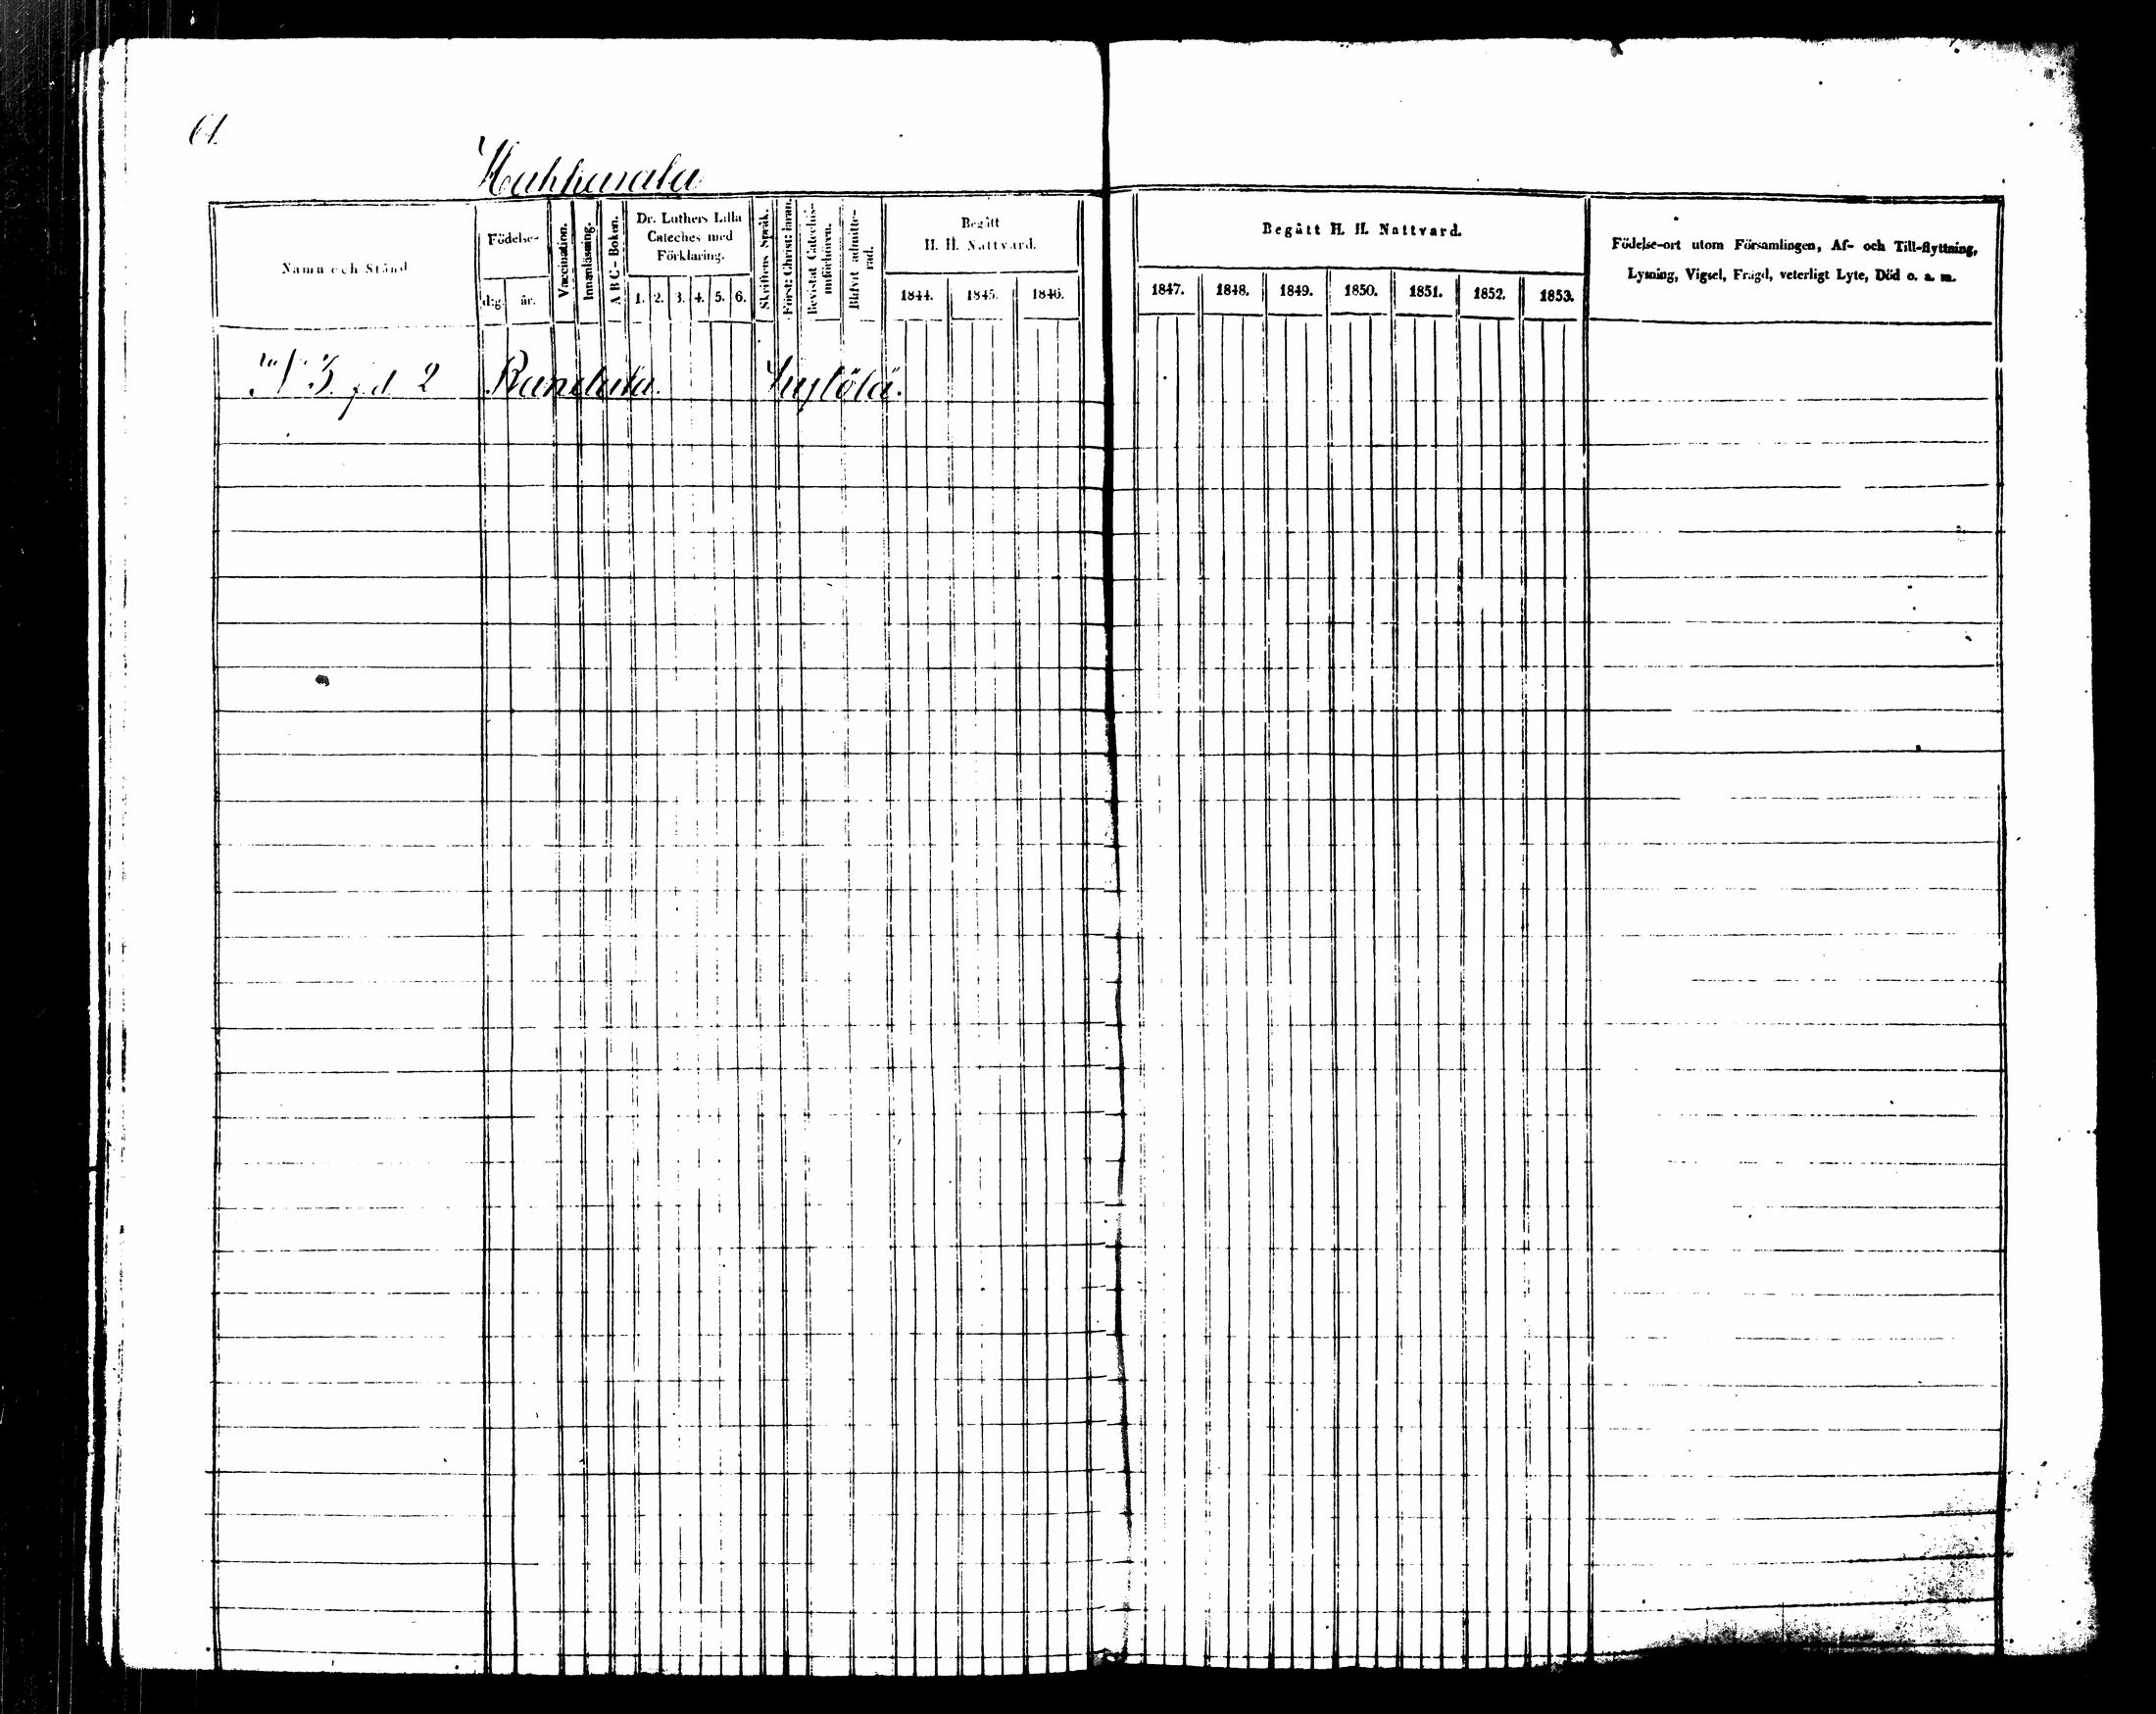 61.
Hakkarala
Namn och Stånd
Födelse-
d:g. år.
Vaccination.
Innanläsning.
A B C - Boken.
Dr. Luthers Lilla
Cateches med
Förklaring.
1. 2. 3. 4. 5. 6.
Skriftens Språk.
Först: Christ: läran.
Bevistat Catechis-
miförhören.
Blifvit admitte-
rad.
Begått
H. H. Nattvard.
1844. 1845. 1846.
Begått H. H. Nattvard.
1847. 1848. 1849. 1850. 1851. 1852. 1853.
Födelse-ort utom Församlingen, Af- och Till-flyttning,
Lysning, Vigsel, Frägd, veterligt Lyte, Död o. a. m.
N 3 f.d 2 Randala.